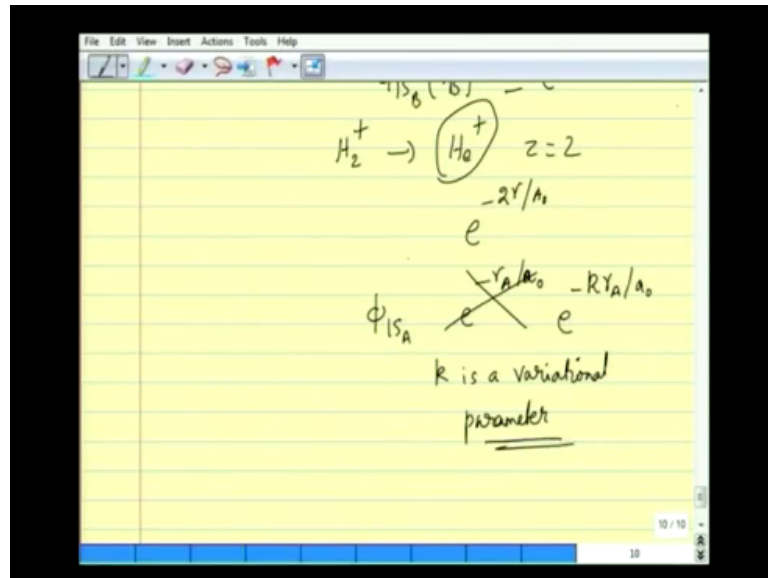 File Edit View Insert Actions Tools Help
H₂⁺ → He⁺ z=2
e^{-2r/a₀}
ϕ_{1S_A} e^{-r_A/a₀} e^{-kr_A/a₀}
k is a variational
parameter
10 / 10
10